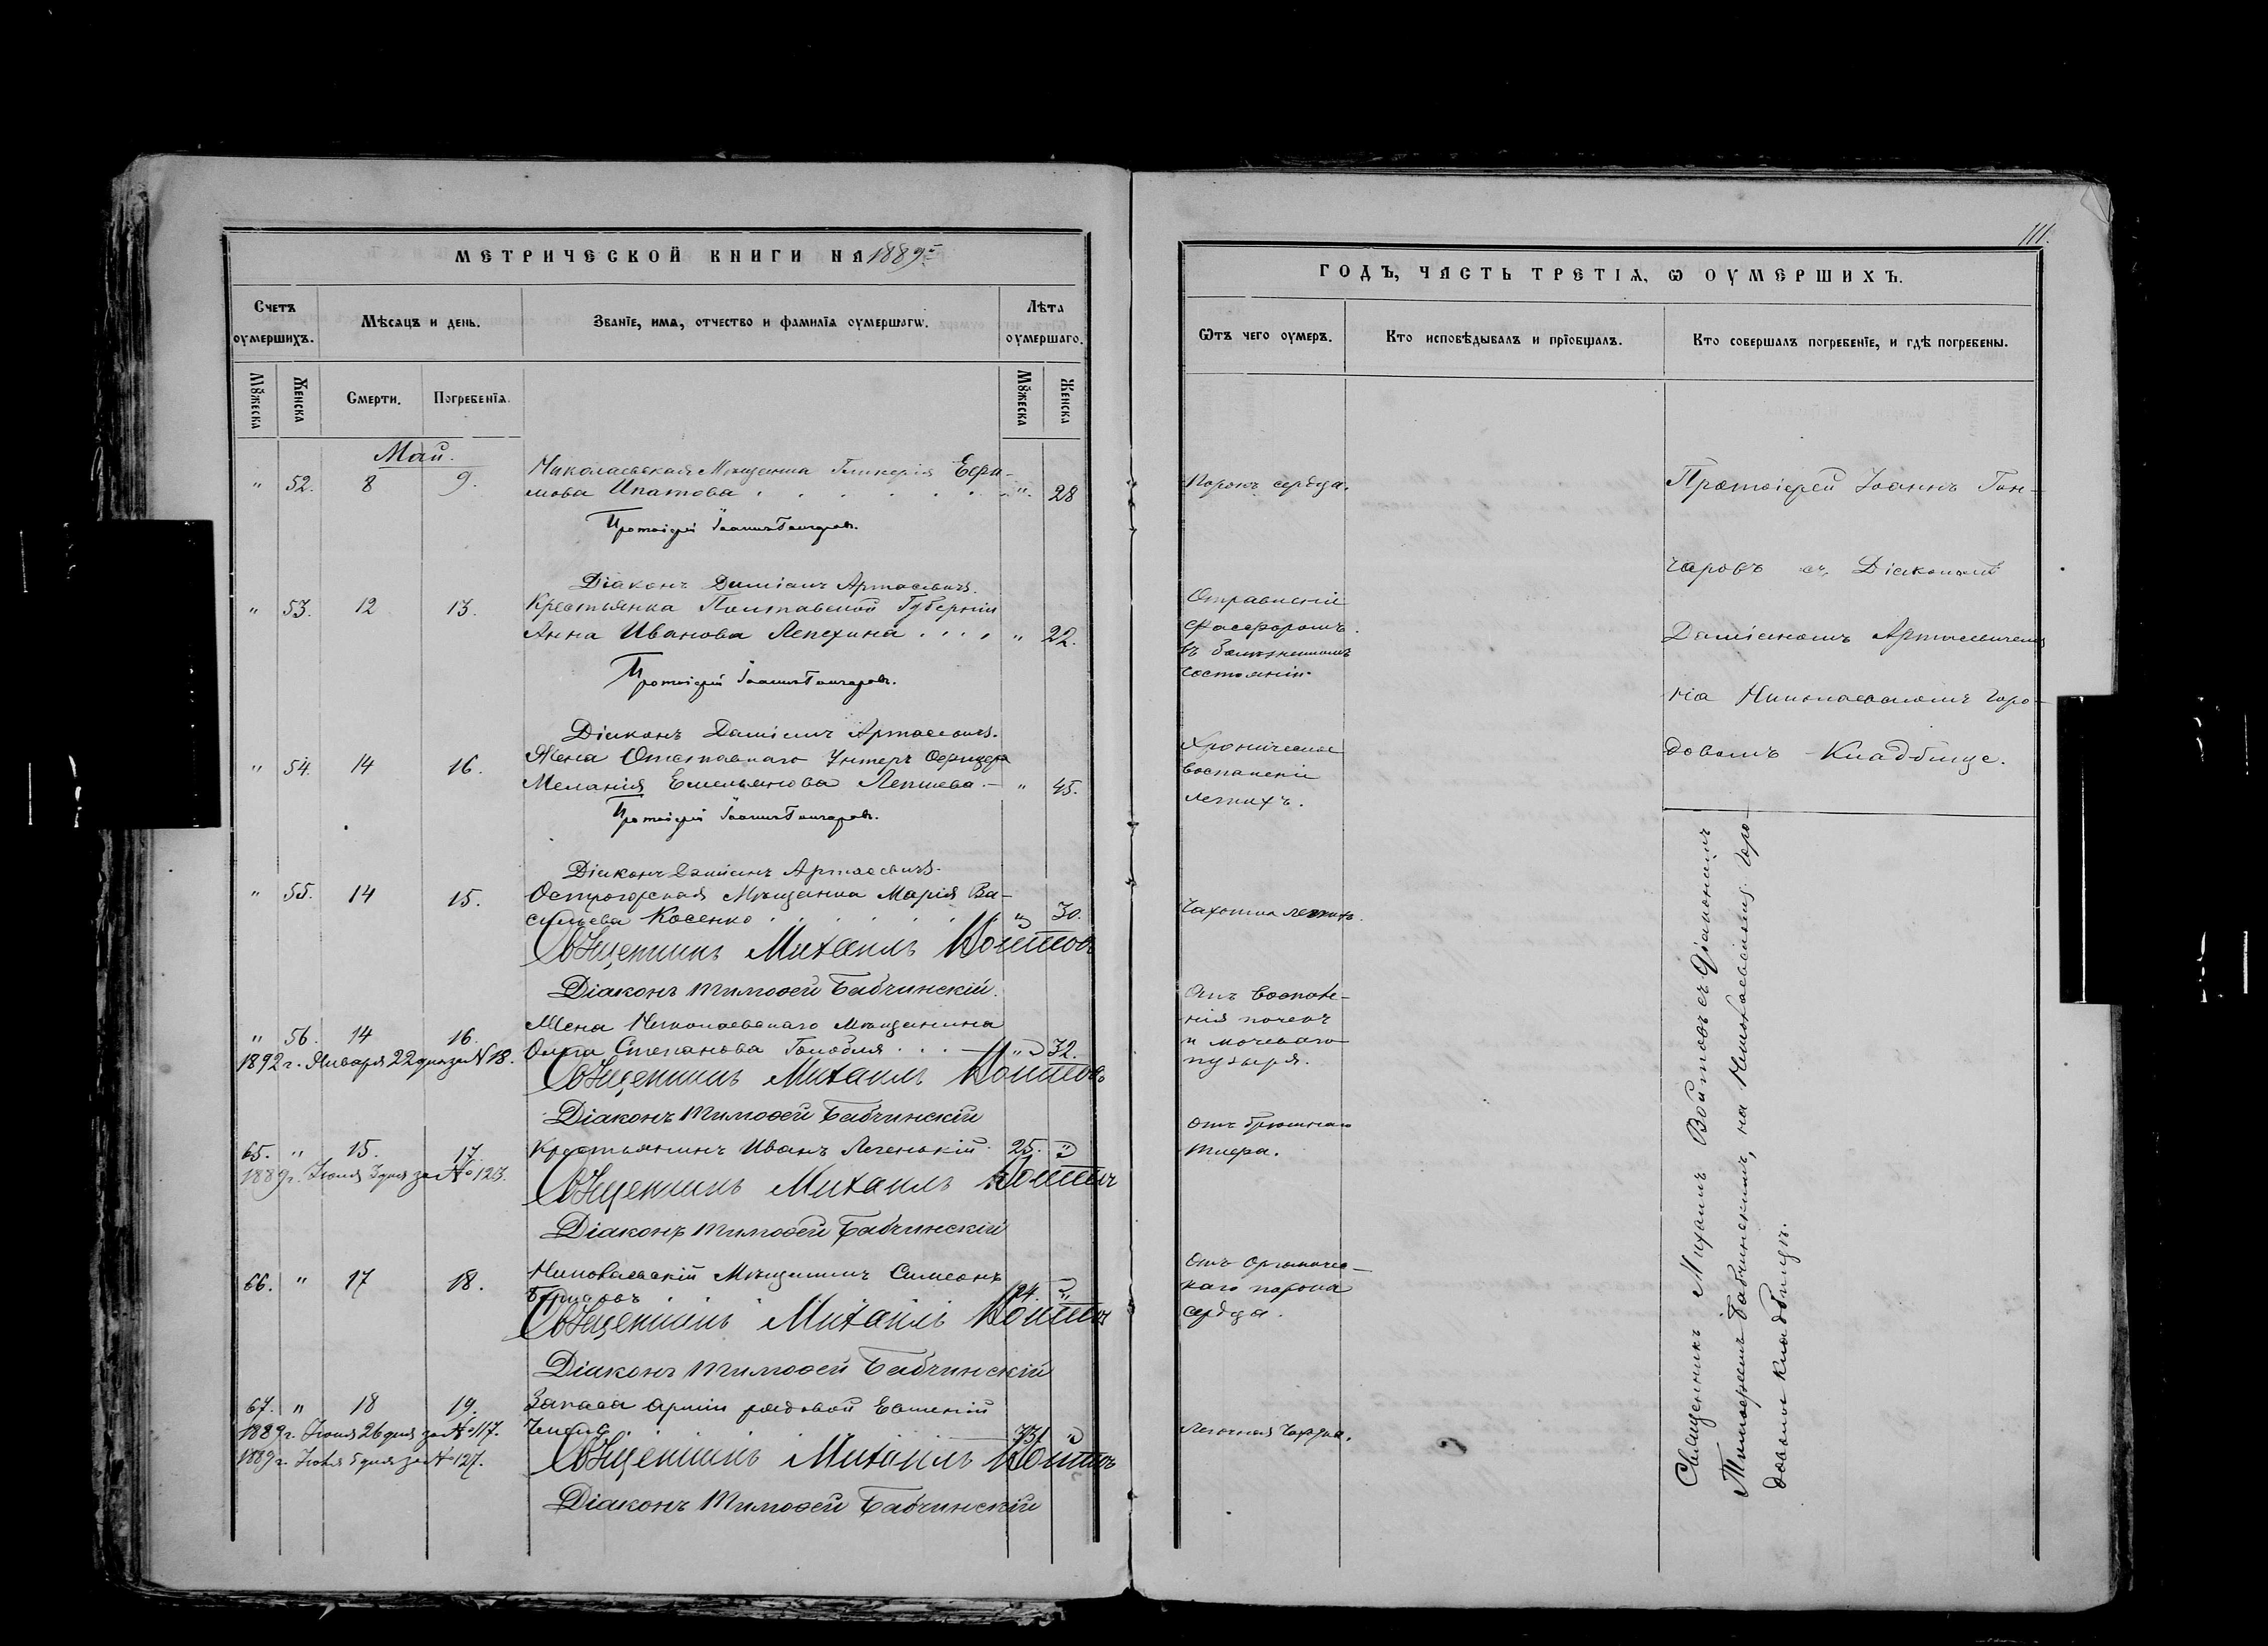 МЕТРИЧЕСКОЙ КНИГИ НА 1889 г.
Счетъ оумершихъ.
Мѣсяцъ и день.
Званїе, имя, отчество и фамилїя оумершагw.
Лѣта оумершаго.
Мꙋжеска
Женска
Смерти.
Погребенїя.
Мꙋжеска
Женска
Май.
" 52. 8 9. Николаевская Мѣщанка Гликерія Ефи-
мова Ипатова . . . . . . . " 28
Протоіерей Іоаннъ Гончаровъ.
Діаконъ Даміанъ Артасевичъ.
" 53. 12 13. Крестьянка Полтавской Губерніи
Анна Иванова Лепехина . . . . " 22.
Протоіерей Іоаннъ Гончаровъ.
Діаконъ Даміанъ Артасевичъ.
" 54. 14 16. Жена Отставнаго Унтеръ Офицера
Меланія Емельянова . – " 45.
Протоіерей Іоаннъ Гончаровъ.
Діаконъ Даміанъ Артасевичъ.
" 55. 14 15. Острогорская Мѣщанка Марія Ва-
сильева Косенко . . . . . . " 30.
Священникъ Михаилъ Войтовъ
Діаконъ Тимоѳей Бабчинскій.
" 56. 14 16. Жена Николаевскаго Мѣщанина
Ольга Степанова Голобля . . . – " 32.
1892 г. Января 22 дня за № 18.
Священникъ Михаилъ Войтовъ
Діаконъ Тимоѳей Бабчинскій
65. " 15. 17. Крестьянинъ Иванъ Легенькій. 25. "
1889 г. Іюля 3 дня за № 123.
Священникъ Михаилъ Войтовъ
Діаконъ Тимоѳей Бабчинскій
66. " 17 18. Николаевскій Мѣщанинъ Симеонъ
24. "
Священникъ Михаилъ Войтовъ
Діаконъ Тимоѳей Бабчинскій
67. " 18 19. Запаса арміи рядовой Евгеній
33. "
1889 г. Іюня 26 дня за № 117.
1889 г. Іюля 5 дня за № 127.
Священникъ Михаилъ Войтовъ
Діаконъ Тимоѳей Бабчинскій
111.
ГОДЪ, ЧАСТЬ ТРЕТІЯ, Ѡ ОУМЕРШИХЪ.
Ѿтъ чего оумеръ.
Кто исповѣдывалъ и прїобщалъ.
Кто совершалъ погребенїе, и гдѣ погребены.
Порокъ сердца.
Отравленіе
фосфоромъ.
въ болѣзненномъ
состояніи.
Хроническое
воспаленіе
легкихъ.
Чахотка легкихъ.
Отъ воспале-
нія почекъ
и мочеваго
пузыря.
Отъ брюшнаго
тифа.
Отъ органичес-
каго порока
сердца.
Легочная чахотка.
Протоіерей Іоаннъ Гон-
чаровъ съ Діакономъ
Даміаномъ Артасевичемъ
на Николаевскомъ горо-
довомъ Кладбище.
Священникъ Михаилъ Войтовъ съ Діакономъ
Тимоѳеемъ Бабчинскимъ, на Николаевскомъ Горо-
довомъ кладбищѣ.